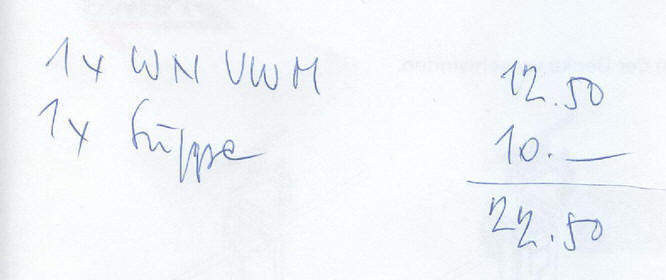 1x WN VWM 12.50
1x Suppe 10.—
22.50